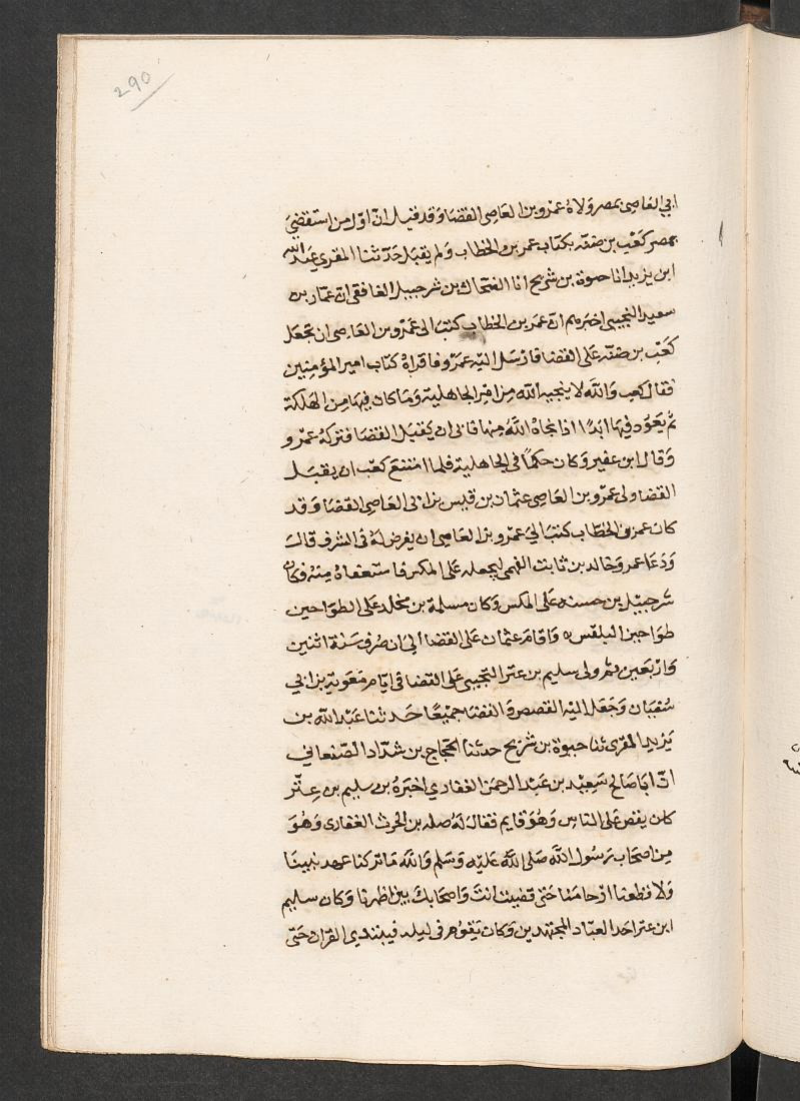 290
ابي العاصى بمصر ولاه عمرو بن العاصى القضا وقد قيل ان اول من استقضي
بمصر كعب بن ضنه بكتاب عمر بن الخطاب ولم يقبل حدثنا المقري عبد الله
ابن يزيد انا حيوة بن شريح انا الضحاك بن شرحبيل الغافقي ان عمار بن
سعيد التجيبي اخبرهم ان عمر بن الخطاب كتب الى عمرو بن العاصى ان يجعل
كعب بن ضنه على القضا فارسل اليه عمرو فاقراه كتاب امير المؤمنين
فقال كعب والله لا ينجيه الله من امر الجاهلية وما كان فيها من الهلكة
ثم يعود فيها ابدًا اذا نجاه الله منها فابى ان يقبل القضا فتركه عمرو
وقال ابن عفير وكان حكمًا في الجاهلية فلما امتنع كعب ان يقبل
القضا ولى عمرو بن العاصى عثمان بن قيس بن ابى العاصى القضا وقد
كان عمر بن الخطاب كتب الي عمرو بن العاصى ان يفرض له فى الشرف قال
ودعا عمرو خالد بن ثابت الفهمى ليجعله على المكس فاستعفاه منه فكان
شرحبيل بن حسنه على المكس وكان مسلمة بن مخلد على الطواحين
طواحين البلقس واقام عثمان على القضا الى ان صرف سنة اثنين
واربعين ثم ولى سليم بن عتر التجيبى على القضا فى ايام معوية بن ابي
سفيان وجعل اليه القصص والقضا جميعًا حدثنا عبد الله بن
يزيد المقرى ثنا حيوة بن شريح حدثنا الحجاج بن شداد الصنعاني
ان ابا صالح سعيد بن عبد الرحمن الغفاري اخبره بن سليم بن عتر
كان يقص على الناس وهو قايم فقال له صله بن الحرث الغفارى وهو
من اصحاب رسول الله صلى الله عليه وسلم والله ما تركنا عهد نبينا
ولا قطعنا ارحامنا حتى قمت انت واصحابك بين اظهرنا وكان سليم
ابن عتر احد العباد المجتهدين وكان يقوم فى ليله فيبتدي القران حتى